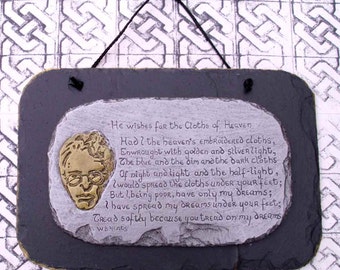 He wishes for the Cloths of Heaven
Had I the heaven's embroidered cloths,
Enwrought with golden and silver light,
The blue and the dim and the dark cloths
Of night and light and the half-light,
I would spread the cloths under your feet;
But I, being poor, have only my dreams;
I have spread my dreams under your feet;
Tread softly because you tread on my dreams
W B Yeats